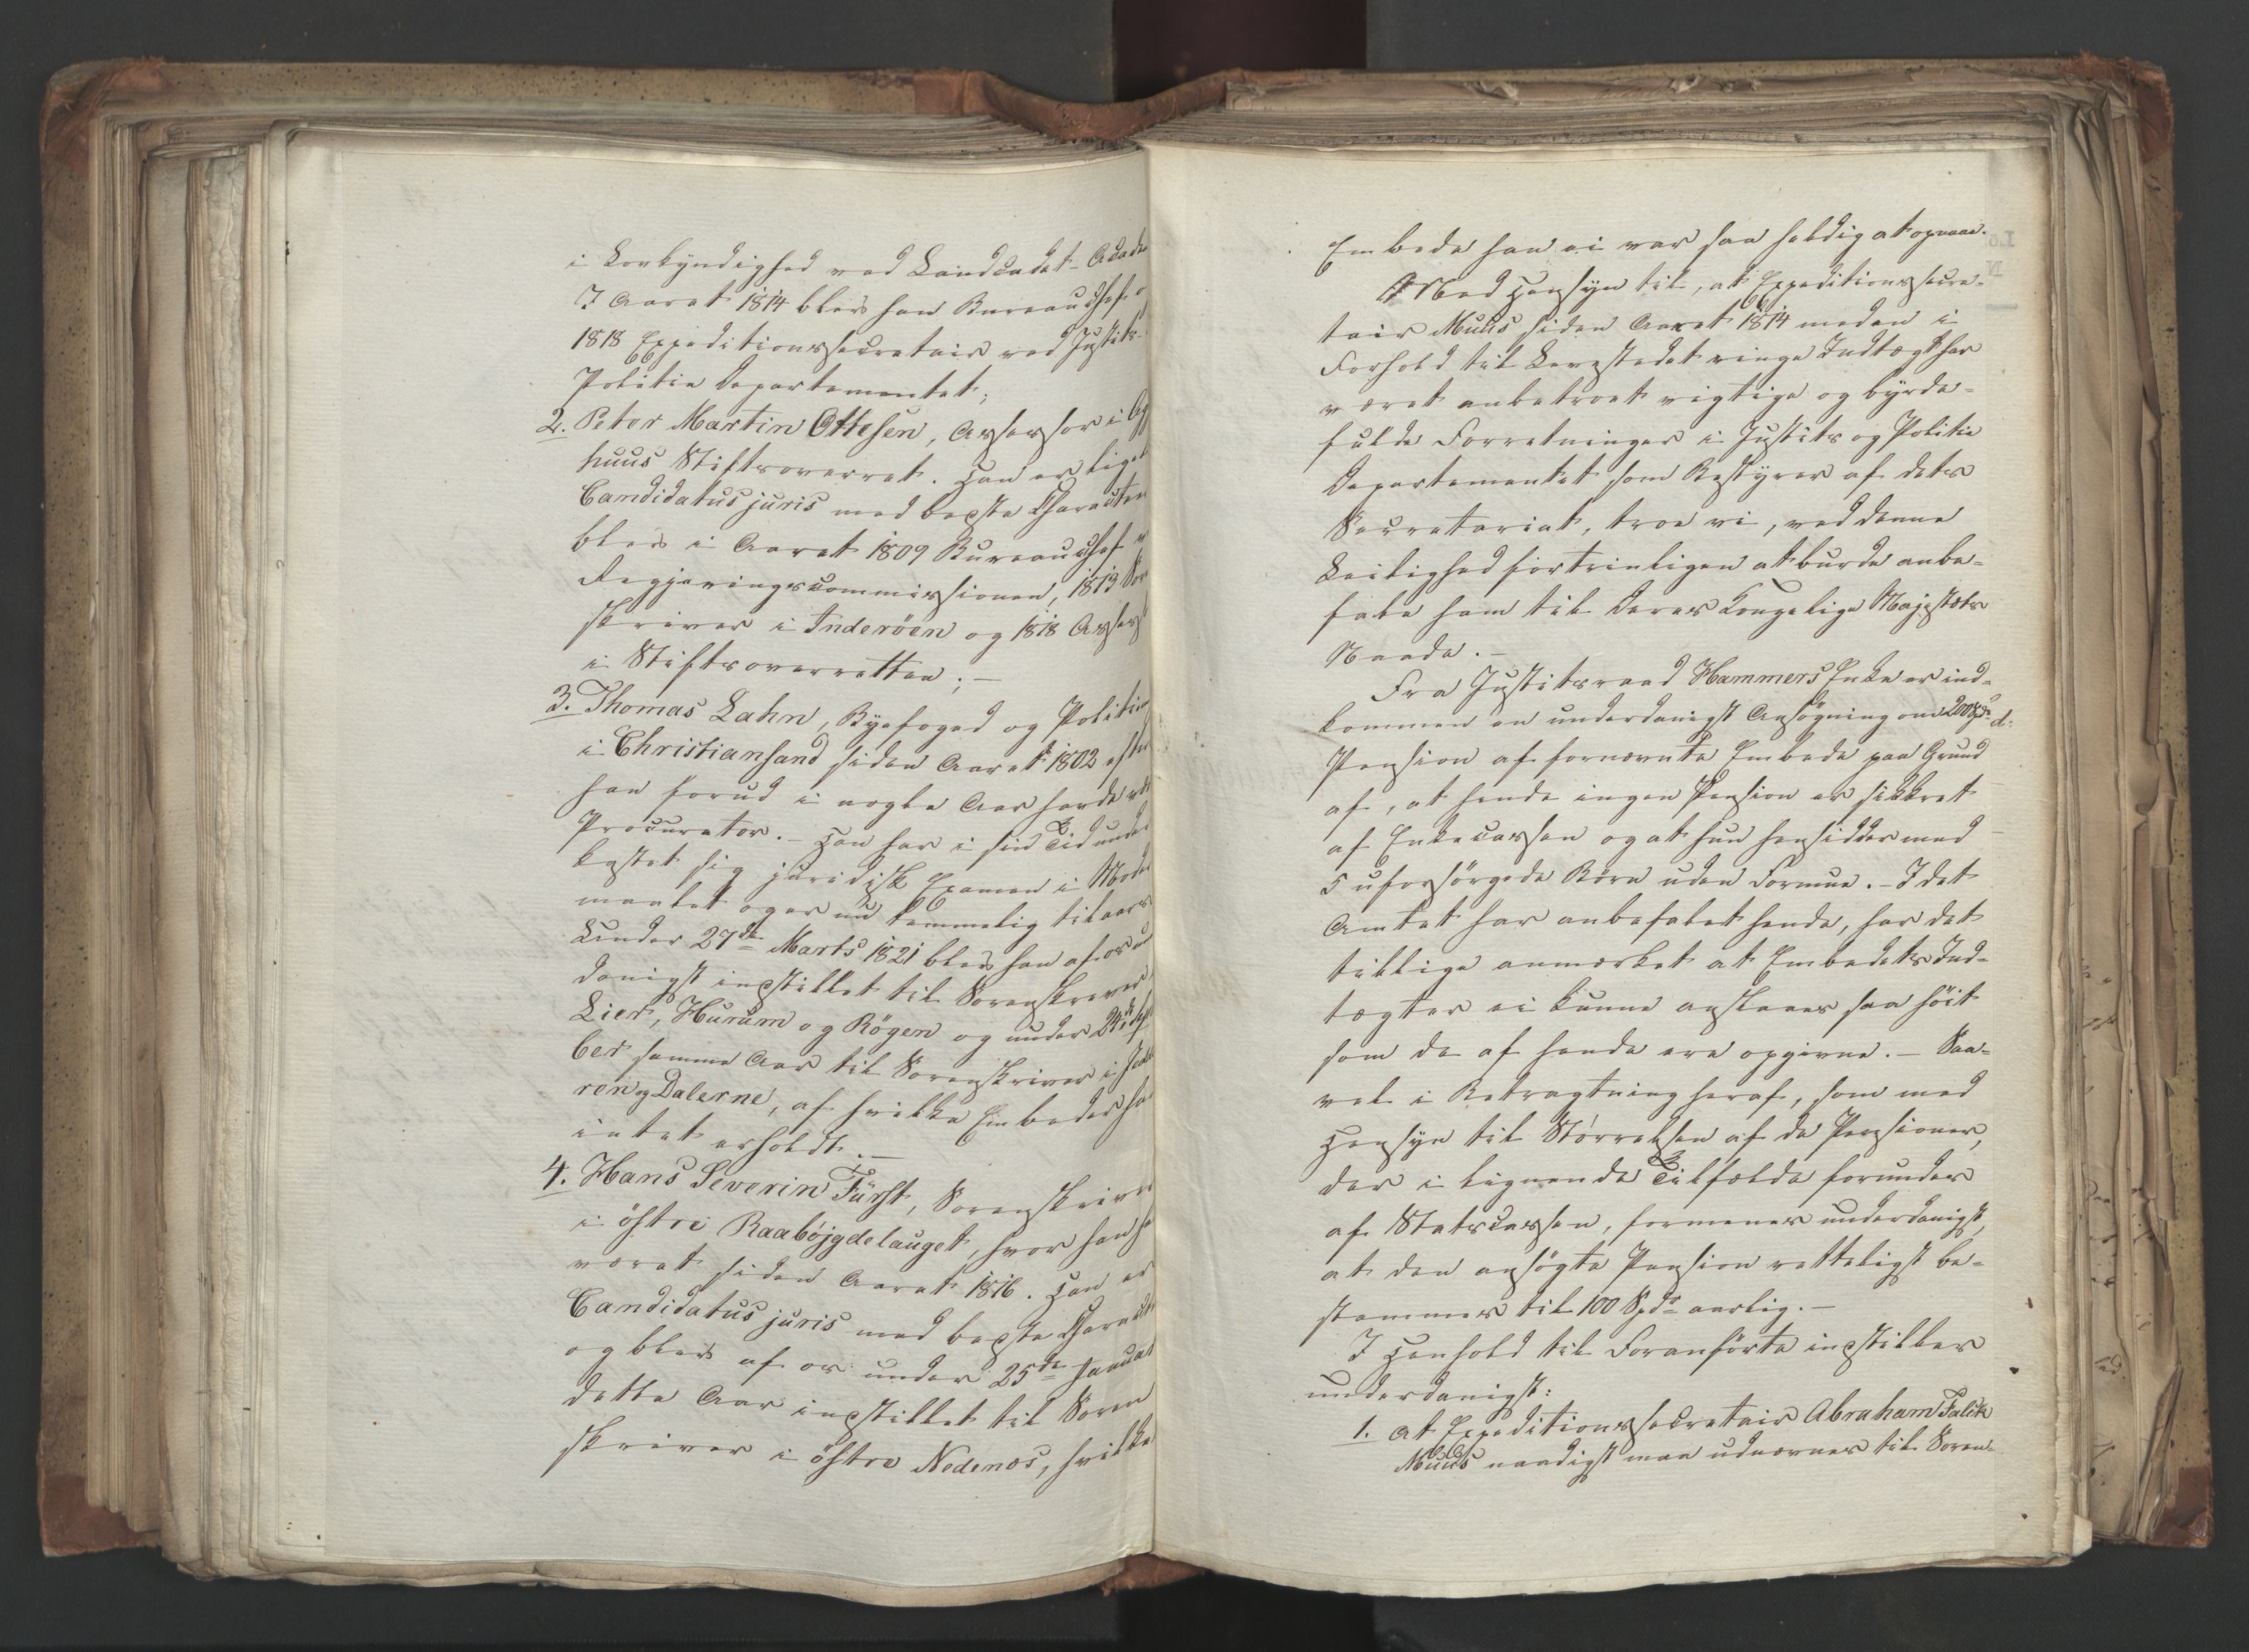 i Lovkyndighed ved Landcadet-Acade
I Aaret 1814 blev han Bureauchef o
1818 Expeditionssecretair ved Justits-
Politie Departementet;
2. Peter Martin Ottesen, Assessor i Agg
huus Stiftsoverret. Han er liget
Candidatus juris med bedste Charactee
blev i Aaret 1809 Bureauchef v
Regjeringscommissionen, 1813 Sor
skriver i Inderöen og 1818 Assess
i Stiftsoverretten; -
3. Thomas Lahn, Byefoged og Politim
i Christiansand siden Aaret 1802 efter
han forud i nogle Aar havde vær
Procurator. - Han har i sin Tid under
kastet sig juridisk Examen i Moder
maalet og er nu temmelig til aars
Under 27de Marts 1821 blev han af os un
danigst indstillet til Sorenskriver
Lier, Hurum og Rögen og under 24de
ber samme Aar til Sorenskriver i Jæde
ren og Dalerne, af hvilke Embeder ha
intet erholdt. -
4. Hans Severin Fürst, Sorenskriver
i östre Raaböjgdelauget, hvor han h
været siden Aaret 1816. Han er
Candidatus juris med bedste Charact
og blev af os under 25de Januar
dette Aar indstillet til Soren
skriver i östre Nedenæs, hvilke
Embede han ei var saa heldig at opnaae.
Med Hensyn til, at Expeditionssecre-
tair Muus siden Aaret 1814 meden i
Forhold til Levestedet ringe Indtægt har
været anbetroet vigtige og byrde-
fulde Forretninger i Justits og Politie
Departementet som Bestyrer af dets
Secretariat, troe vi, ved denne
Leilighed fortrinligen at burde anbe-
fale ham til Deres Kongelige Majestæts
Naade. -
Fra Justitsraad Hammers Enke er ind-
kommen en underdanigst Ansögning om 200 Spd
Pension af fornævnte Embede paa Grund
af, at hende ingen Pension er sikkret
af Enkecassen og at hun hensidder med
5 uforsörgede Börn uden Formue. - Idet
Amtet har anbefalet hende, har det
tillige anmærket at Embedets Ind-
tægter ei kunne ansLaaes saa höit
som de af hende ere opgivne. - Saa-
vel i Betragtning heraf, som med
Hensyn til Störrelsen af de Pensioner,
der i lignende Tilfælde forundes
af Statscassen, formenes underdanigst,
at den ansögte Pension retteligst be-
stemmes til 100 Spdr aarlig. -
I Henhold til Foranförte indstilles
underdanigst:
1. At Expeditionssecretair Abraham Falck
Muus naadigst maa udnævnes til Soren-